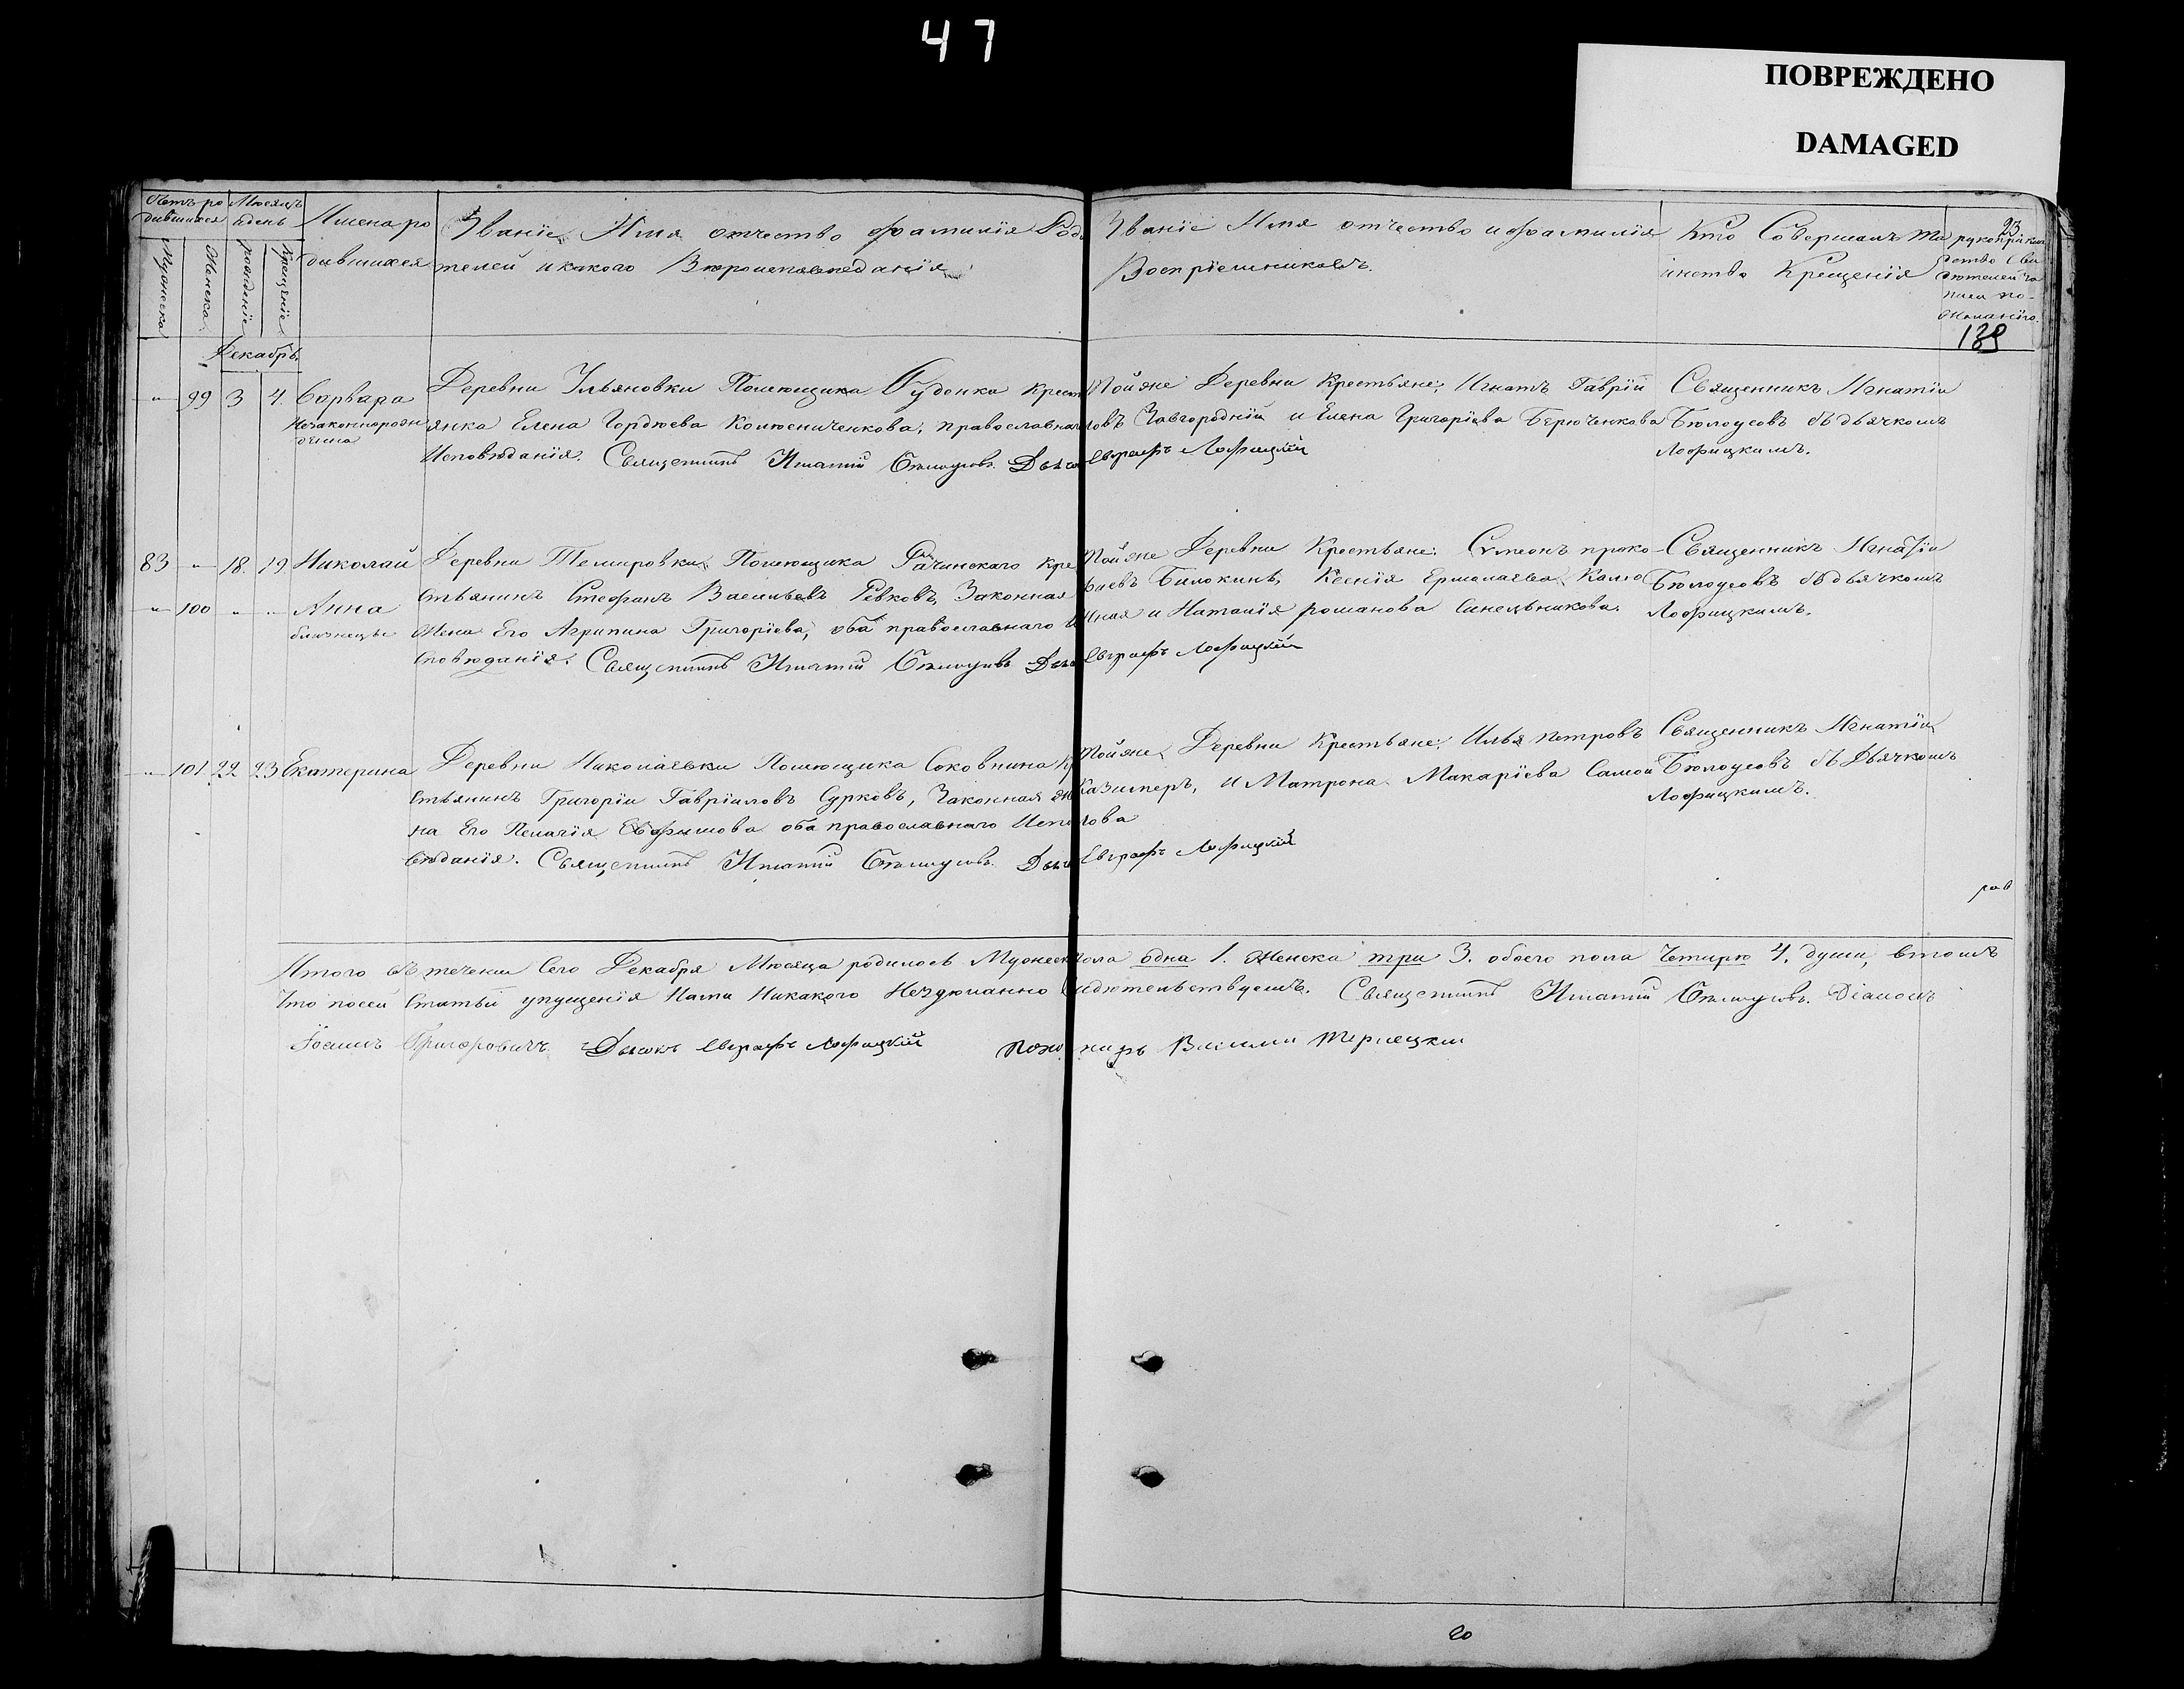 47
ПОВРЕЖДЕНО
DAMAGED
Счетъ ро Мѣсяцъ
дившихся и день
Мужеска Женска рожденіе Крещеніе
Имена ро
дившихся
Званіе, Имя отчество фамилія Роди
телей и какого Вѣроисповѣданія
Званіе Имя отчество и фамилія
Воспріемниковъ.
Кто Совершалъ Та
инство Крещенія
23
рукоприклад
ство Сви
дѣтелей За
писи по
желанію.
139
Декабрь.
" 99 3 4. Варвара
Незаконнорож
денна
Деревни Ульяновки Помѣщика Гудонка крест
янка Елена Гордѣева Колѣсниченкова, православнаго
Исповѣданія. Священникъ Игнатій Бѣлоусовъ. Дьячо
Тойже Деревни Крестьяне: Игнатъ Гаврій
ловъ Завгородній и Елена Григоріева Берюченкова
Евграфъ Лофицкій
Священникъ Игнатіи
Бѣлоусовъ съ дьячкомъ
Лофицкимъ.
83 " 18. 19 Николай
" 100 " " Анна
близнецы
Деревни Темировки Помѣщика Рачинскаго Кре
стьянинъ Стефанъ Васильевъ Ревковъ, Законная
Жена Его Агрипина Григоріева, оба православнаго И
сповѣданія. Священникъ Игнатій Бѣлоусовъ Дьячо
Тойже Деревни Крестьяне: Сѵмеонъ проко-
фіевъ Билокинь, Ксенія Ермолаева Калю
жная и Наталія романова Синельникова.
Евграфъ Лофицкій
Священникъ Игнатіи
Бѣлоусовъ съ дьячкомъ
Лофицкимъ.
" 101 22 23 Екатерина
Деревни Николаевки Помѣщика Соковнина Кр
естьянинъ Григоріи Гавріиловъ Сурковъ, Законная же
на Его Пелагія Ефимова оба православнаго Испо
вѣданія. Священникъ Игнатій Бѣлоусовъ. Дьячо
Тойже Деревни Крестьяне: Илья петровъ
Казимеръ, и Матрона Макаріева Самой
лова
Евграфъ Лофицкій
Священникъ Игнатіи
Бѣлоусовъ съ Дьячкомъ
Лофицкимъ.
Итого въ теченіи Сего Декабря Мѣсяца родилось Мужеск пола одна 1. Женска три 3. обоего пола Четирѣ 4. души, втомъ
Что посей Статьи упущенія Нами Никакого Нездѣланно Свидѣтельствуемъ. Священникъ Игнатій Бѣлоусовъ. Діаконъ
Іоаннъ Григоровичъ Дьячокъ Евграфъ Лофицкій пономарь Василии Тернецкіи
20